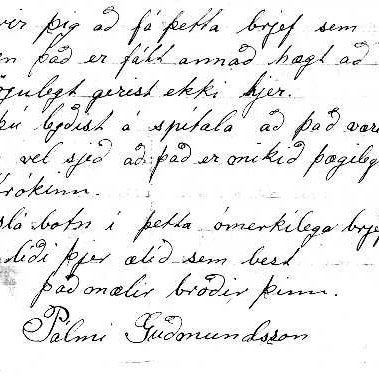 rir þig að fá þetta brjef sem
en það er fátt annað hægt að
gulegt gerist ekki hjer.
þú leðist á spítala að það væri
vel sjeð að það er mikið þægileg
krókinn.
slá botn í þetta ómerkilega brjef
líði þjer ætíð sem best
það mælir bróðir þinn.
Pálmi Guðmundsson